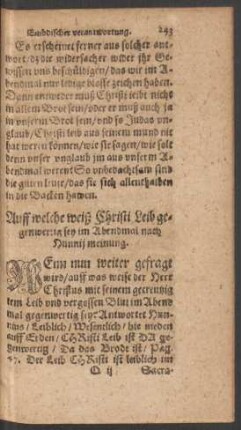 Embdischer verantwortung. 243
Es erscheinet ferner aus solcher ant-
wort/ dz die widersacher wider ihr Ge-
wissen vns beschüldigen/ das wir im A-
bendmal nur ledige blosse zeichen haben.
Denn entweder muß Christi leibt nicht
in allem Brot sein/ oder er muß auch ja
in vnserm Brot sein/ vnd so Judas vn-
glaub/ Christi leib aus seinem mund nit
hat weren können/ wie sie sagen/ wie solt
denn vnser vnglaub jm aus vnserm A-
bendmal weren? So vnbedachtsam sind
die guten leute/ das sie sich allenthalben
in die Backen hawen.
Auff welche weiß Christi Leib ge-
genwertig sey im Abendmal nach
Hunnij meinung.
WEnn nun weiter gefragt
wird/ auff was weise der Herr
Christus mit seinem gecreutzig
tem Leib vnd vergossen Blut im Abend
mal gegenwertig sey: Antwortet Hun-
nius/ Leiblich/ Wesentlich/ hie nieden
auff Erden/ CHRisti Leib ist DA ge-
genwertig/ Da das Brodt ist/ Pag.
Der Leib CHRisti ist leiblich im
Q ij Sacra-